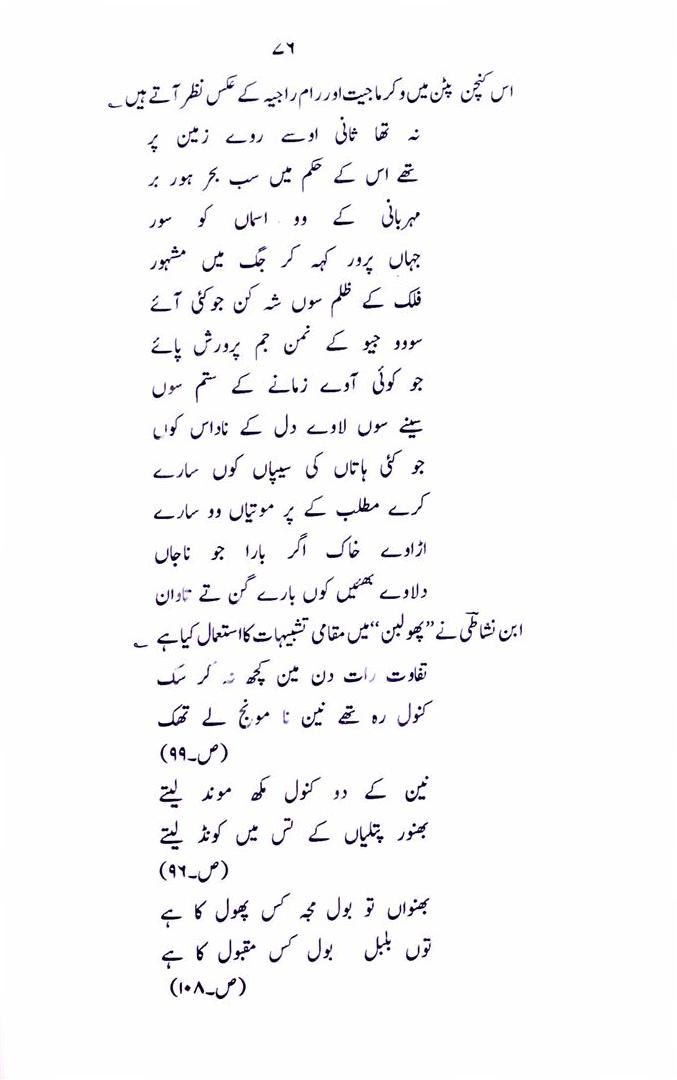 ۷۶
اس کنچن پٹن میں وکرماجیت اور رام راجیہ کے عکس نظر آتے ہیں ؎
نہ تھا ثانی اوسے روے زمین پر
تھے اس کے حکم میں سب بحر ہور بر
مہربانی کے وو اسماں کو سور
جہاں پرور کہہ کر جگ میں مشہور
فلک کے ظلم سوں شہ کن جو کئی آئے
سووو جیو کے نمن جم پرورش پائے
جو کوئی آوے زمانے کے ستم سوں
سینے سوں لاوے دل کے ناداس کوں
جو کئی ہاتاں کی سیپاں کوں سارے
کرے مطلب کے پر موتیاں وو سارے
اڑاوے خاک اگر بارا جو ناجاں
دلاوے بھئیں کوں بارے گن تے تاوان
ابن نشاطی نے ”پھولبن“ میں مقامی تشبیہات کا استعمال کیا ہے ؎
تفاوت رات دن مین کچھ نہ کر سک
کنول رہ تھے نین نا مونچ لے تھک
(ص۔۹۹)
نین کے دو کنول مکھ موند لیتے
بھنور پتلیاں کے تس میں کونڈ لیتے
(ص۔۹۶)
بھنواں تو بول مجہ کس پھول کا ہے
توں بلبل بول کس مقبول کا ہے
(ص۔۱۰۸)